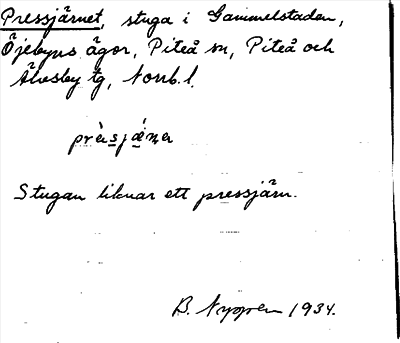 Pressjärnet, stuga i Gammelstaden,
Öjebyns ägor, Piteå sn, Piteå och
Älvsby tg, Norrb. l.
Stugan liknar ett pressjärn.
B. Nyppen 1934.